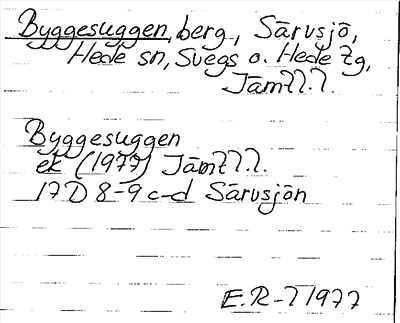 Byggesuggen, berg, Särvsjö,
Hede sn, Svegs o. Hede tg,
Jämtl.l.
Byggesuggen
ek (1977) Jämtl.l.
17D 8-9 c-d Särvsjön
E.R-71977